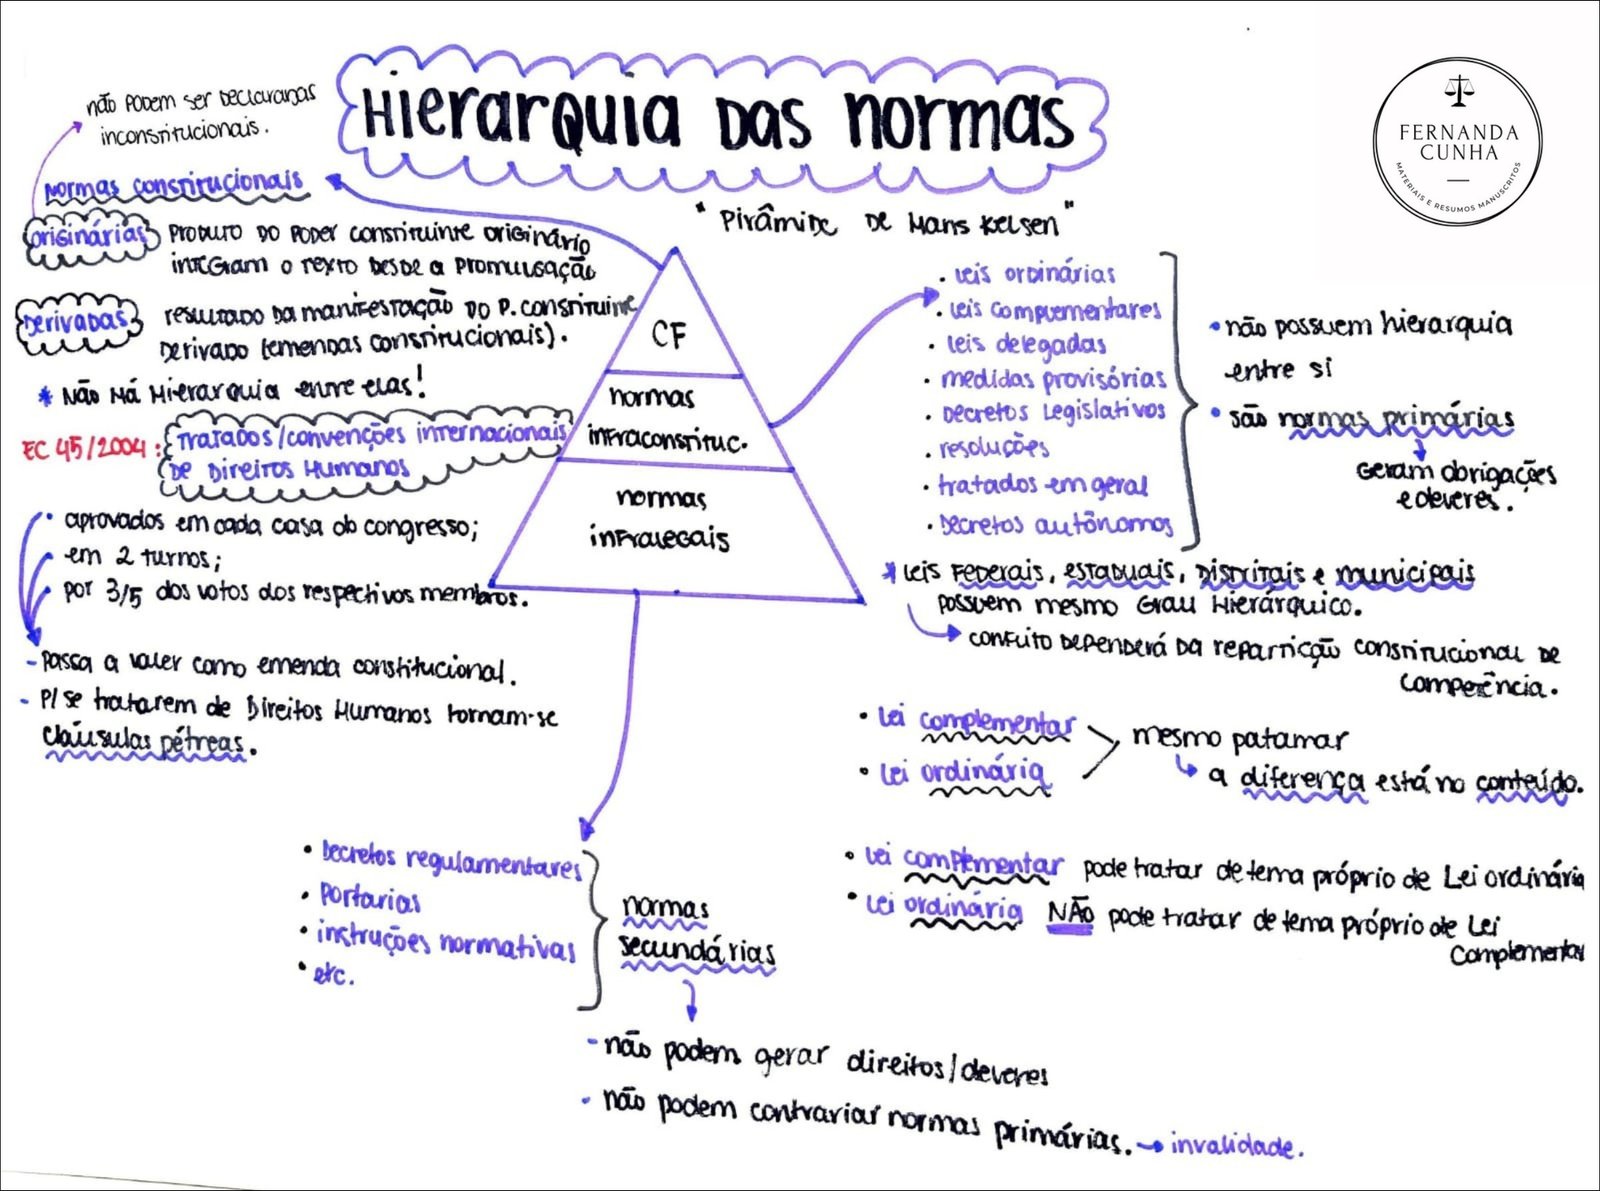 Hierarquia das normas
FERNANDA
CUNHA
MATERIAIS E RESUMOS MANUSCRITOS
"Pirâmide de Hans Kelsen"
não podem ser declaradas
inconstitucionais.
normas constitucionais
originárias
produto do poder constituinte originário
integram o texto desde a promulgação
derivadas
resultado da manifestação do P. constituinte
derivado (emendas constitucionais).
* não há hierarquia entre elas!
EC 45/2004:
tratados/convenções internacionais
de Direitos Humanos
• aprovados em cada casa do congresso;
• em 2 turnos;
• por 3/5 dos votos dos respectivos membros.
- passa a valer como emenda constitucional.
- P/ se tratarem de Direitos Humanos tornam-se
cláusulas pétreas.
CF
normas
infraconstituc.
normas
infralegais
• leis ordinárias
• leis complementares
• leis delegadas
• medidas provisórias
• decretos legislativos
• resoluções
• tratados em geral
• decretos autônomos
• não possuem hierarquia
entre si
• são normas primárias
geram obrigações
e deveres.
* leis federais, estaduais, distritais e municipais
possuem mesmo grau hierárquico.
conflito dependerá da repartição constitucional de
competência.
• lei complementar
• lei ordinária
mesmo patamar
a diferença está no conteúdo.
• lei complementar pode tratar de tema próprio de Lei ordinária
• lei ordinária NÃO pode tratar de tema próprio de Lei
Complementar
• decretos regulamentares
• portarias
• instruções normativas
• etc.
normas
secundárias
- não podem gerar direitos/deveres
- não podem contrariar normas primárias. → invalidade.